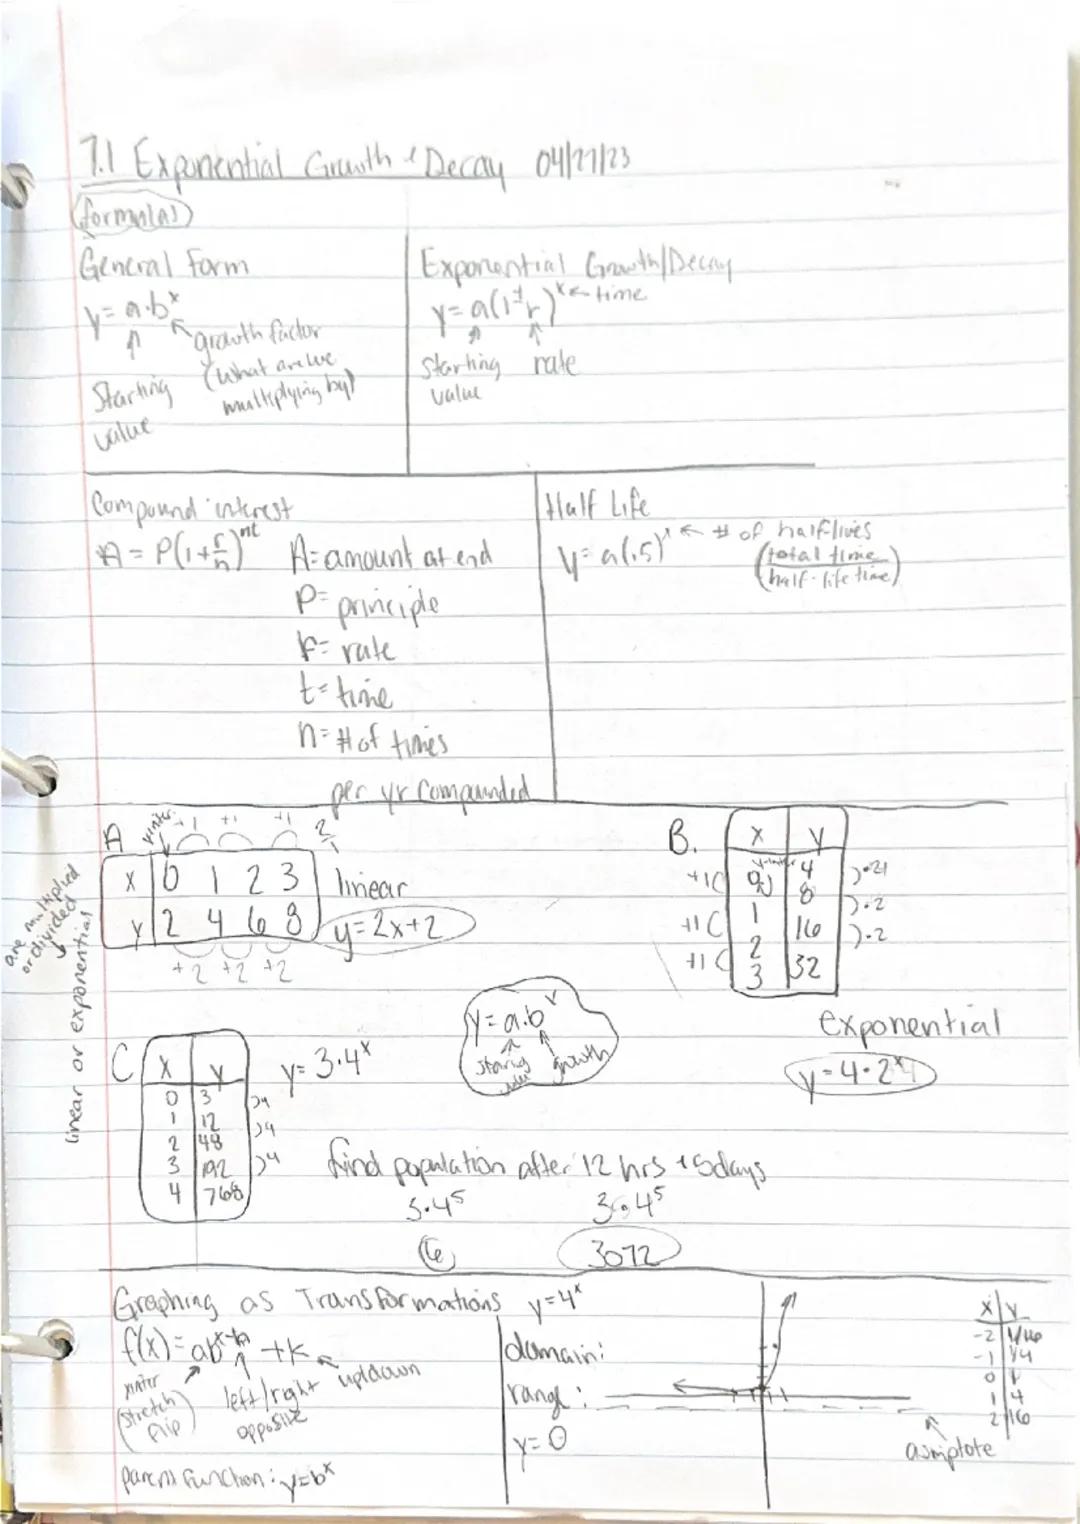 7.1 Exponential Growth & Decay 04/27/23
formulas
General Form
y = a·b^x
growth factor
(what are we
multiplying by)
Starting
value
Exponential Growth/Decay
y = a(1±r)^x ← time
starting rate
value
Compound interest
A = P(1+r/n)^nt
A = amount at end
P = principle
r = rate
t = time
n = # of times
per yr compounded
Half Life
y = a(.5)^x ← # of halflives
(total time
half-life time)
linear or exponential
are multiplied
or divided
A
yinter
+1 +1 +1
x 0 1 2 3
y 2 4 6 8
+2 +2 +2
2/1
linear
y = 2x+2
B.
x y
0 4
1 8
2 16
3 32
+1
+1
+1
·2
·2
·2
exponential
y = 4·2^x
y = a·b^x
starting growth
value
C
x y
0 3
1 12
2 48
3 192
4 768
4
4
4
y = 3·4^x
find population after 12 hrs + 5 days
3·4^5
3·4^5
6
3072
Graphing as Transformations
f(x) = ab^x-h + k
yinter
(stretch
flip)
left/right
opposite
up/down
parent function: y = b^x
y = 4^x
domain:
range:
y = 0
x y
-2 1/16
-1 1/4
0 1
1 4
2 16
asmiptote